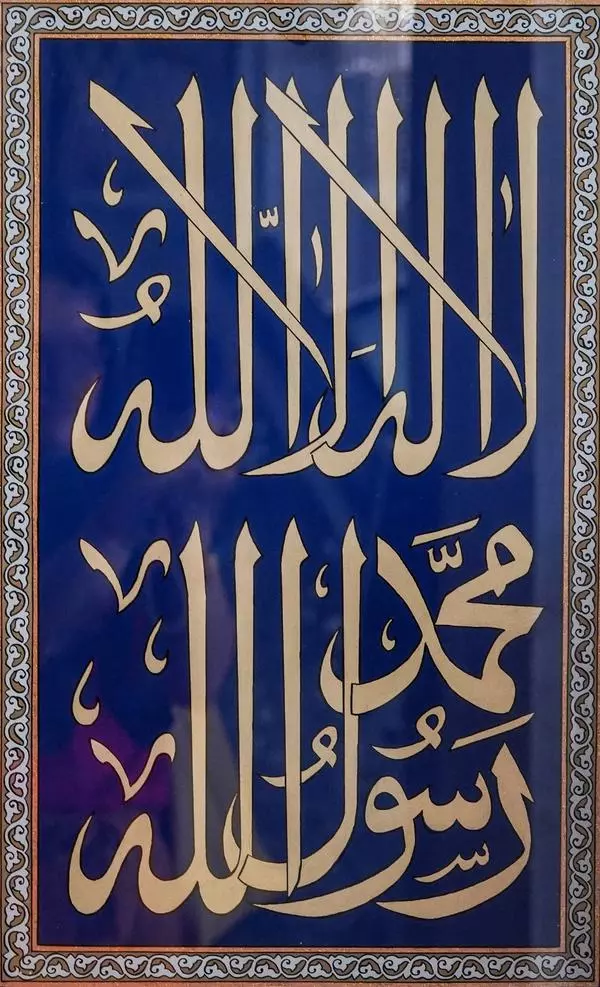 لا اله الا اللهُ
محمَّد رسُولُ الله